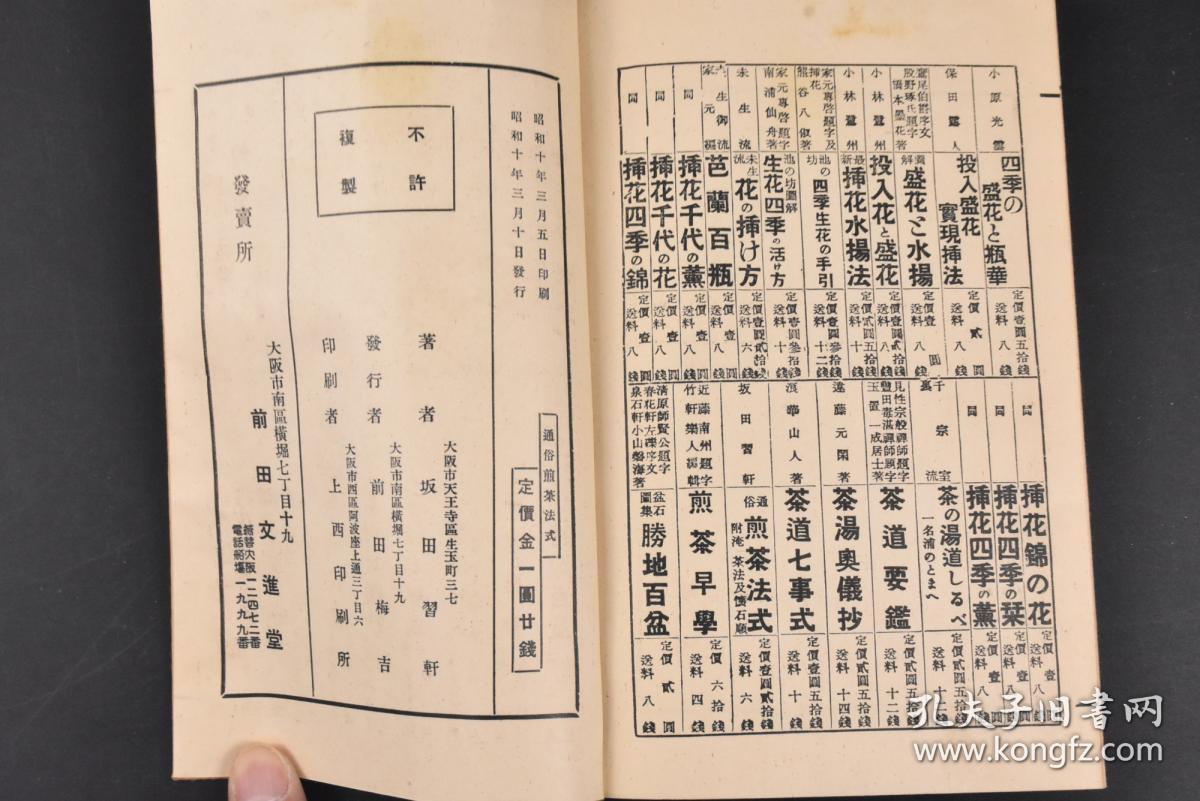 小原光雲
四季の
盛花と瓶華
定價壹圓五拾錢
送料八錢
保田鷺人
投入盛花
實現挿法
定價貳圓
送料八錢
鷲尾伯爵序文
橋本墨花著
盛花と水揚
定價壹圓
送料八錢
小林鷺州
投入花と盛花
定價壹圓貳拾錢
送料八錢
小林鷺州
最新
挿花水揚法
定價貳圓五拾錢
送料十錢
家元專啓題字及挿花
熊谷八俶著
池の坊
四季生花の手引
定價壹圓參拾錢
送料十二錢
家元專啓題字
南浦仙舟著
池の坊圖解
生花四季の活け方
定價壹圓參拾錢
送料十錢
未生流
未生流
花の挿け方
定價壹圓貳拾錢
送料六錢
未生御流
家元編
芭蘭百瓶
定價壹圓
送料八錢
同
挿花千代の薫
定價壹圓
送料八錢
同
挿花千代の花
定價壹圓
送料八錢
同
挿花四季の錦
定價壹圓
送料八錢
同
挿花錦の花
定價壹圓
送料八錢
同
挿花四季の栞
定價壹圓
送料八錢
同
挿花四季の薫
定價壹圓
送料八錢
千宗室
裏流
茶の湯道しるべ
一名浦のとまへ
定價壹圓五拾錢
送料十二錢
見性宗般禪師題字
豐田毒湛禪師題字
玉置一成居士著
茶道要鑑
定價貳圓五拾錢
送料十二錢
遠藤元閑著
茶湯奥儀抄
定價貳圓五拾錢
送料十四錢
浪華山人著
茶道七事式
定價壹圓五拾錢
送料十錢
坂田習軒
通俗
煎茶法式
附淹茶法及懷石順
定價壹圓貳拾錢
送料六錢
近藤南州題字
竹軒樂人編輯
煎茶早學
定價六拾錢
送料四錢
清原師賢公題字
春花軒左礫序文
泉石軒小山磐海著
盆石圖集
勝地百盆
定價貳圓
送料八錢
通俗煎茶法式
定價金一圓廿錢
昭和十年三月五日印刷
昭和十年三月十日發行
不許
複製
著者
大阪市天王寺區生玉町三七
坂田習軒
發行者
大阪市南區横堀七丁目十九
前田梅吉
印刷者
大阪市西區阿波座上通三丁目六
上西印刷所
發賣所
大阪市南區横堀七丁目十九
前田文進堂
振替大阪一二四七二番
電話船場一九九九番
孔夫子旧书网
www.kongfz.com